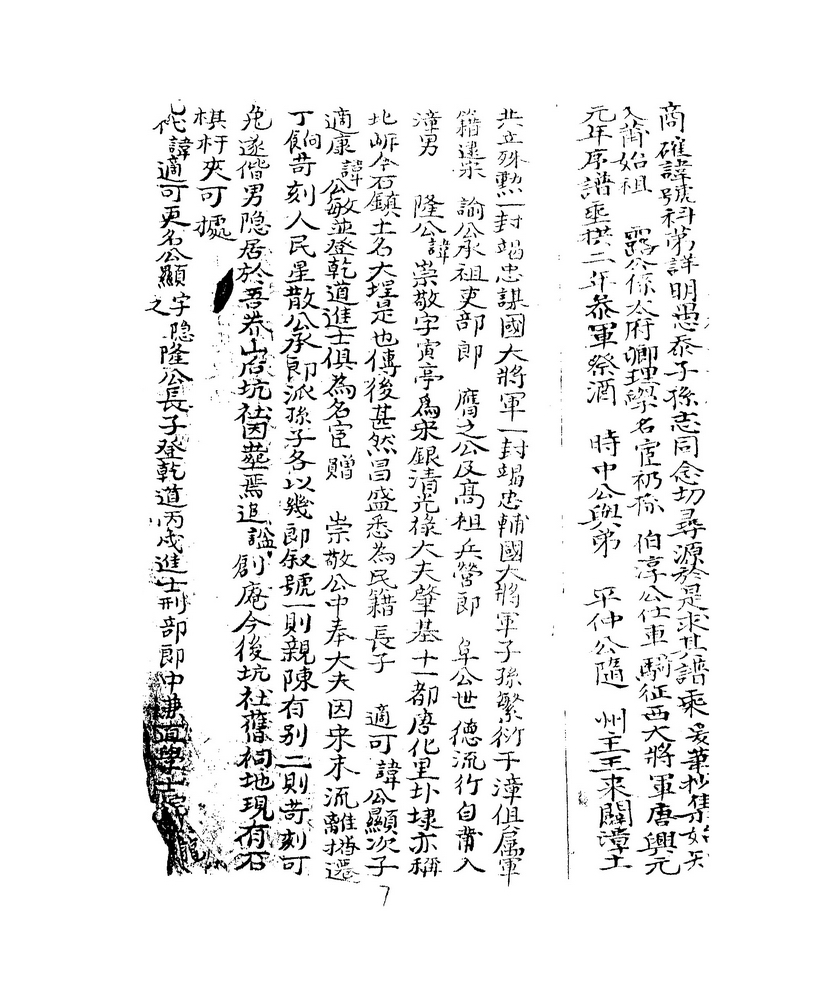 商確諱號科第詳明愚忝子孫志同念切尋源於是求其譜乘爰筆抄集
入莆始祖　露公係太府卿理學名宦礽係　伯淳公仕車騎征西大將軍唐興元
元年序譜垂拱二年參軍祭酒　時中公與弟　平仲公隨　州主王來闢漳土
共立殊勲一封竭忠謀國大將軍一封竭忠輔國大將軍子孫繁衍于漳俱屬軍
籍遠宗　諭公承祖吏部郎　膺之公及高祖兵營郎　阜公世德流行自莆入
漳男　隆公諱崇敬字寅亭為宋銀清光祿大夫肇基十一都唐化里圤埭亦稱
北岓今石鎮土名大埕是也傳後甚然昌盛悉為民籍長子　適可諱公顯次子
適康諱公敏並登乾道進士俱為名宦贈　崇敬公中奉大夫因宋末流離播遷
丁餉苛刻人民星散公承郎派孫子各以幾郎叙號一則親陳有別二則苛刻可
免遂偕男隐居於吾莽山后坑社因塟焉追謚創庵今後坑社舊祠地現有石
棋枰夾可據
諱適可更名公顯字隐之隆公長子登乾道丙戌進士刑部郎中